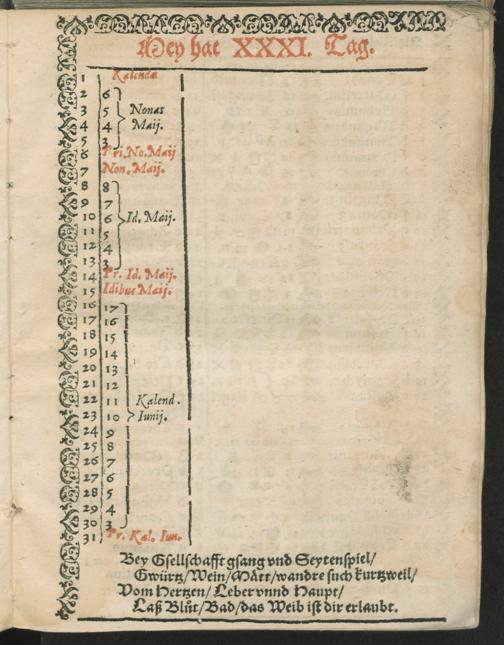 Mey hat XXXI. Tag.
1 Kalendæ
2 6
3 5 Nonas
4 4 Maij.
5 3
6 Pri. No. Maij
7 Non. Maij.
8 8
9 7
10 6 Id. Maij.
11 5
12 4
13 3
14 Pr. Id. Maij.
15 Idibus Maij.
16 17
17 16
18 15
19 14
20 13
21 12
22 11 Kalend.
23 10 Iunij.
24 9
25 8
26 7
27 6
28 5
29 4
30 3
31 Pr. Kal. Iun.
Bey Gsellschafft gsang vnd Seytenspiel/
Gwürtz/Wein/Mått/wandre such kurtzweil/
Vom Hertzen/Leber vnnd Haupt/
Laß Blůt/Bad/das Weib ist dir erlaubt.